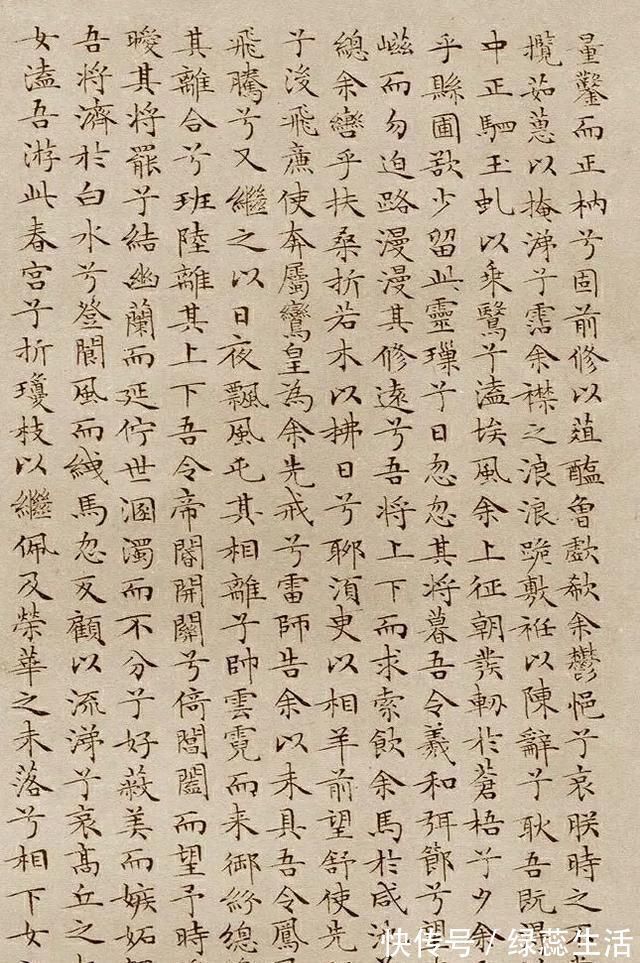 量鑿而正枘兮固前修以葅醢曾歔欷余鬱悒兮哀朕時之不
攬茹蕙以掩涕兮霑余襟之浪浪跪敷衽以陳辭兮耿吾既
中正駟玉虬以乘鷖兮溘埃風余上征朝發軔於蒼梧兮夕余
乎縣圃欲少留此靈璅兮日忽忽其將暮吾令羲和弭節兮望
嵫而勿迫路漫漫其修遠兮吾將上下而求索飲余馬於咸池
總余轡乎扶桑折若木以拂日兮聊須臾以相羊前望舒使先
兮後飛廉使奔屬鸞皇為余先戒兮雷師告余以未具吾令鳳
飛騰兮又繼之以日夜飄風屯其相離兮帥雲霓而来御紛總
其離合兮班陸離其上下吾令帝閽開關兮倚閶闔而望予時
曖其將罷兮結幽蘭而延佇世溷濁而不分兮好蔽美而嫉妬
吾將濟於白水兮登閬風而緤馬忽反顧以流涕兮哀高丘之
女溘吾游此春宮兮折瓊枝以繼佩及榮華之未落兮相下女
快传号／绿蕊生活